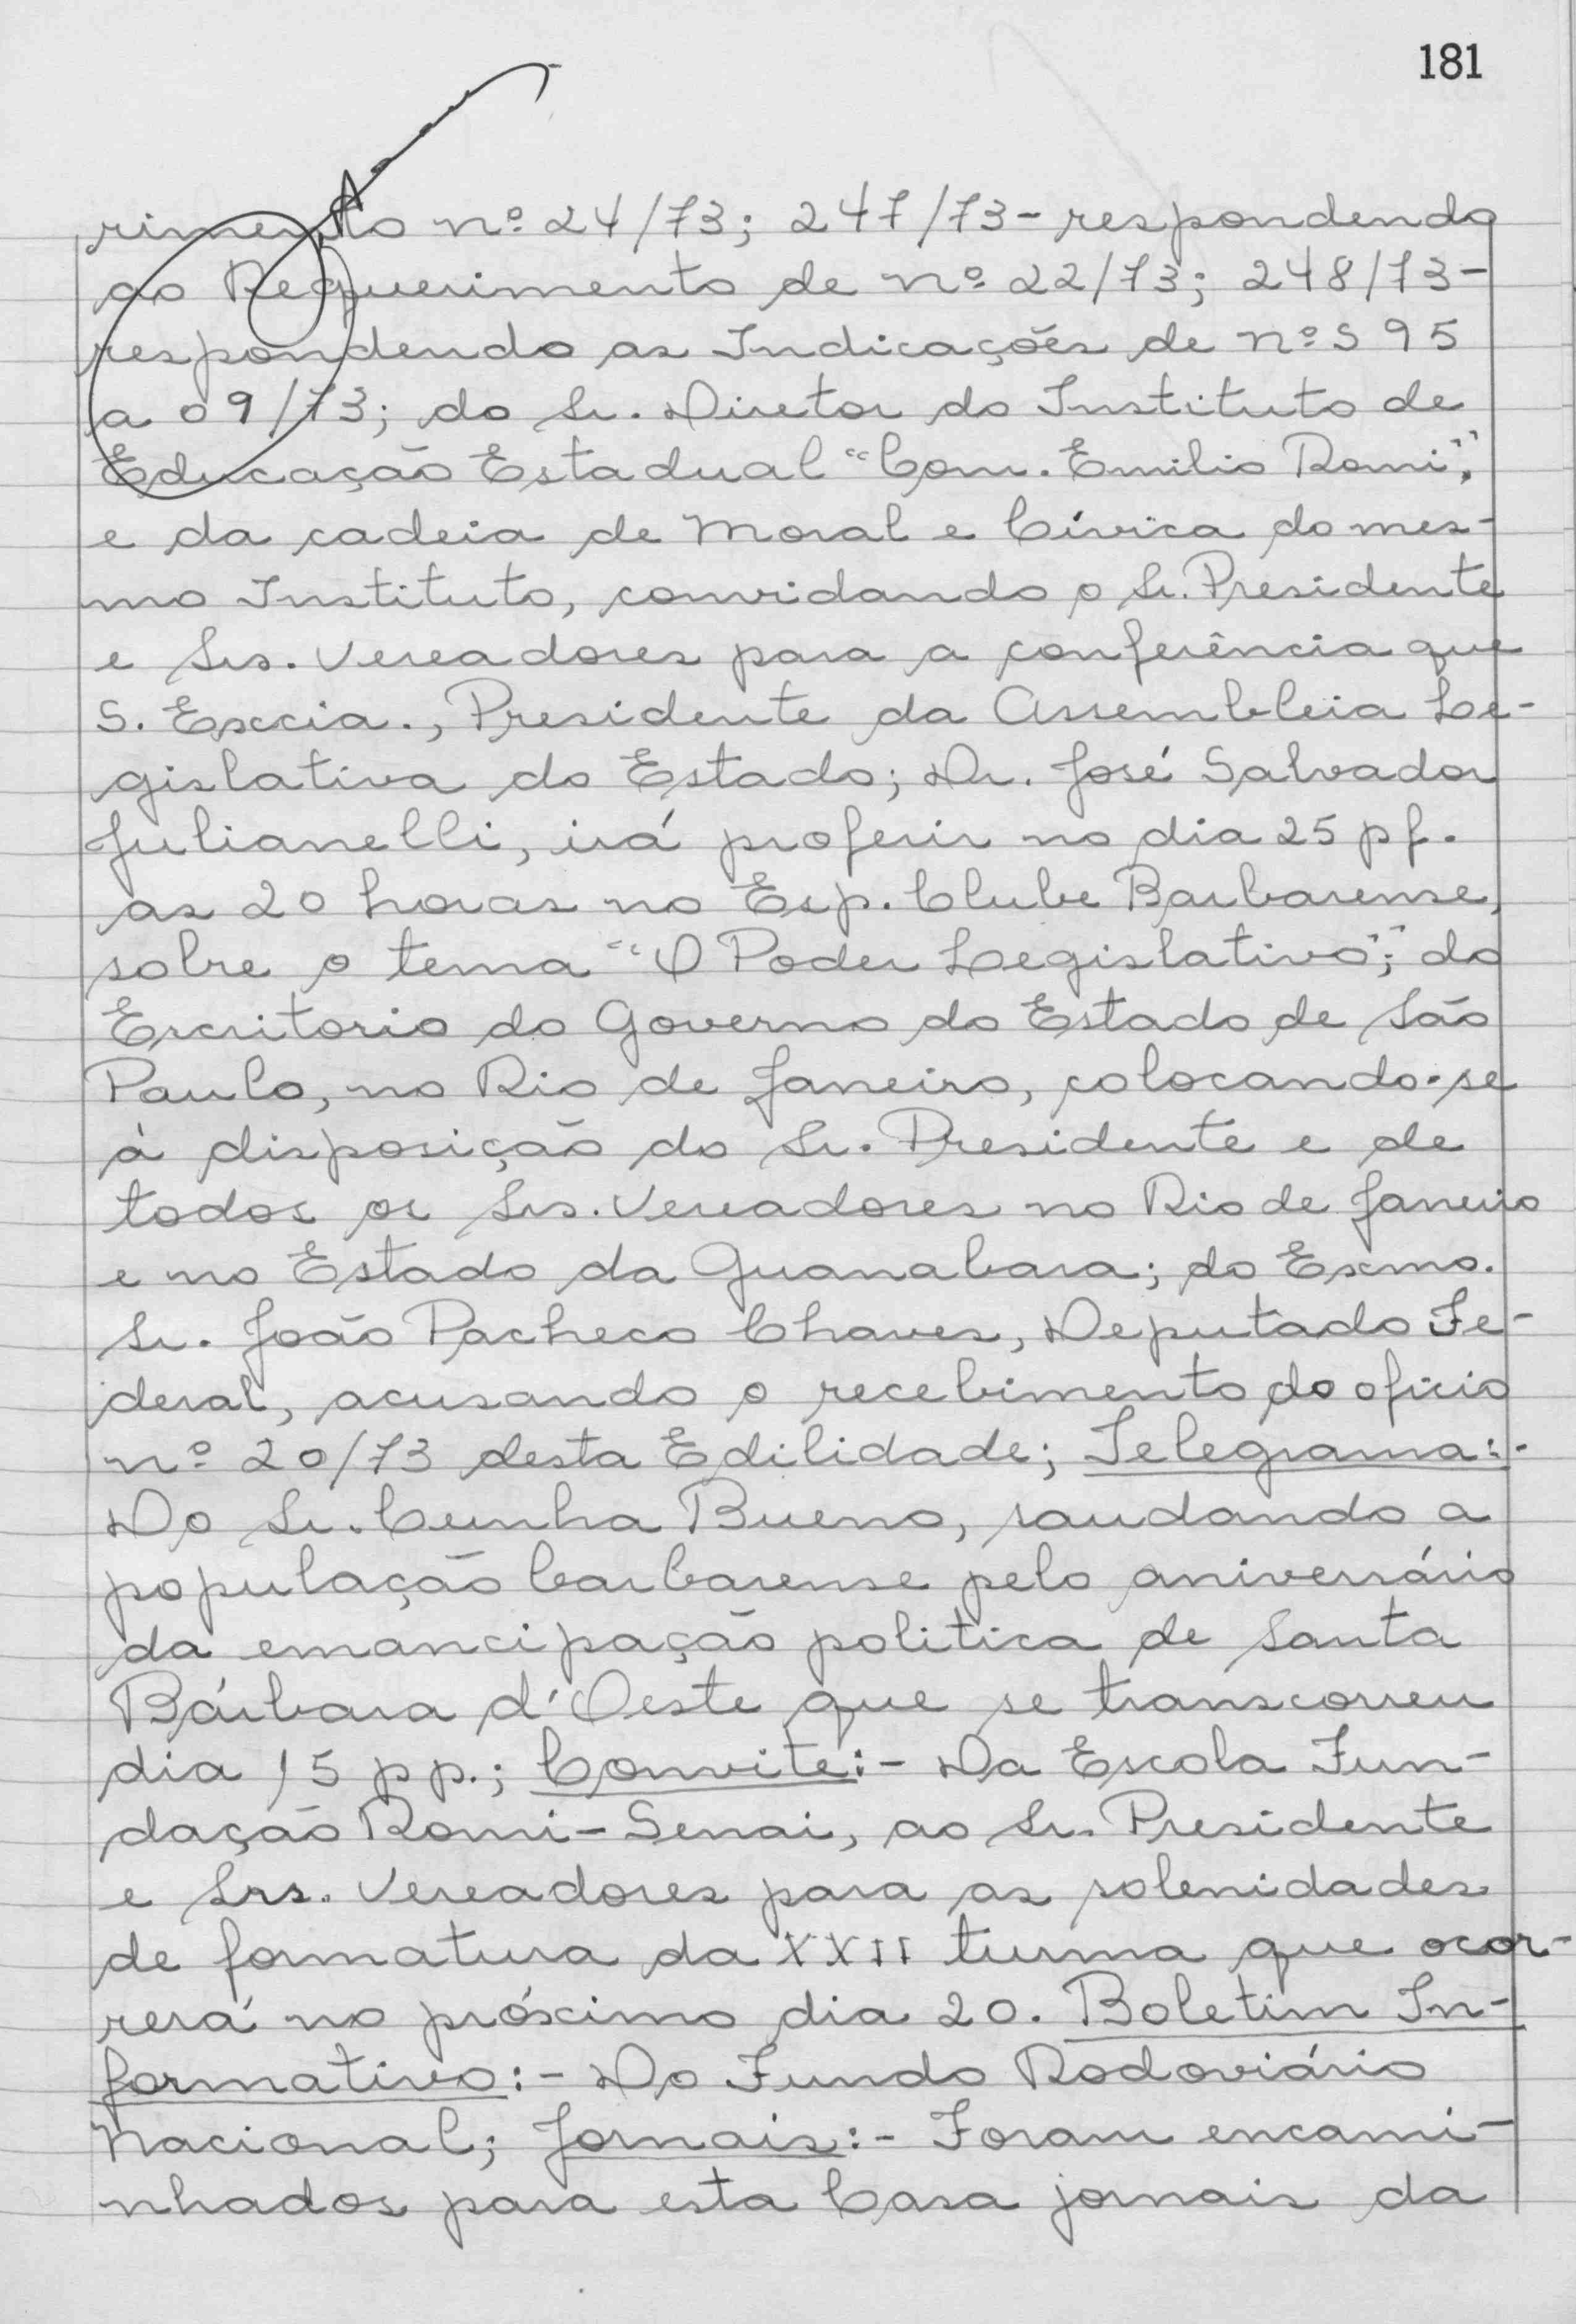 181
rimento nº 24/73; 247/73 - respondendo
ao Requerimento de nº 22/73; 248/73 -
respondendo as Indicações de nºs 95
a 09/73; do Sr. Diretor do Instituto de
Educação Estadual "Com. Emilio Romi",
e da cadeia de Moral e Cívica do mes-
mo Instituto, convidando o Sr. Presidente
e Srs. Vereadores para a conferência que
S. Exccia., Presidente da Assembleia Le-
gislativa do Estado; Dr. José Salvador
Julianelli, irá proferir no dia 25 pf.
as 20 horas no Esp. Clube Barbarense,
sobre o tema "O Poder Legislativo"; do
Escritorio do Governo do Estado de São
Paulo, no Rio de Janeiro, colocando-se
à disposição do Sr. Presidente e de
todos os Srs. Vereadores no Rio de Janeiro
e no Estado da Guanabara; do Exmo.
Sr. João Pacheco Chaves, Deputado Fe-
deral, acusando o recebimento do oficio
nº 20/73 desta Edilidade; Telegrama:-
Do Sr. Cunha Bueno, saudando a
população barbarense pelo aniversário
da emancipação politica de Santa
Bárbara d'Oeste que se transcorreu
dia 15 pp.; Convite:- Da Escola Fun-
dação Romi-Senai, ao Sr. Presidente
e Srs. Vereadores para as solenidades
de formatura da XXII turma que ocor-
rerá no próximo dia 20. Boletim In-
formativo:- Do Fundo Rodoviário
Nacional; Jornais:- Foram encami-
nhados para esta Casa jornais da